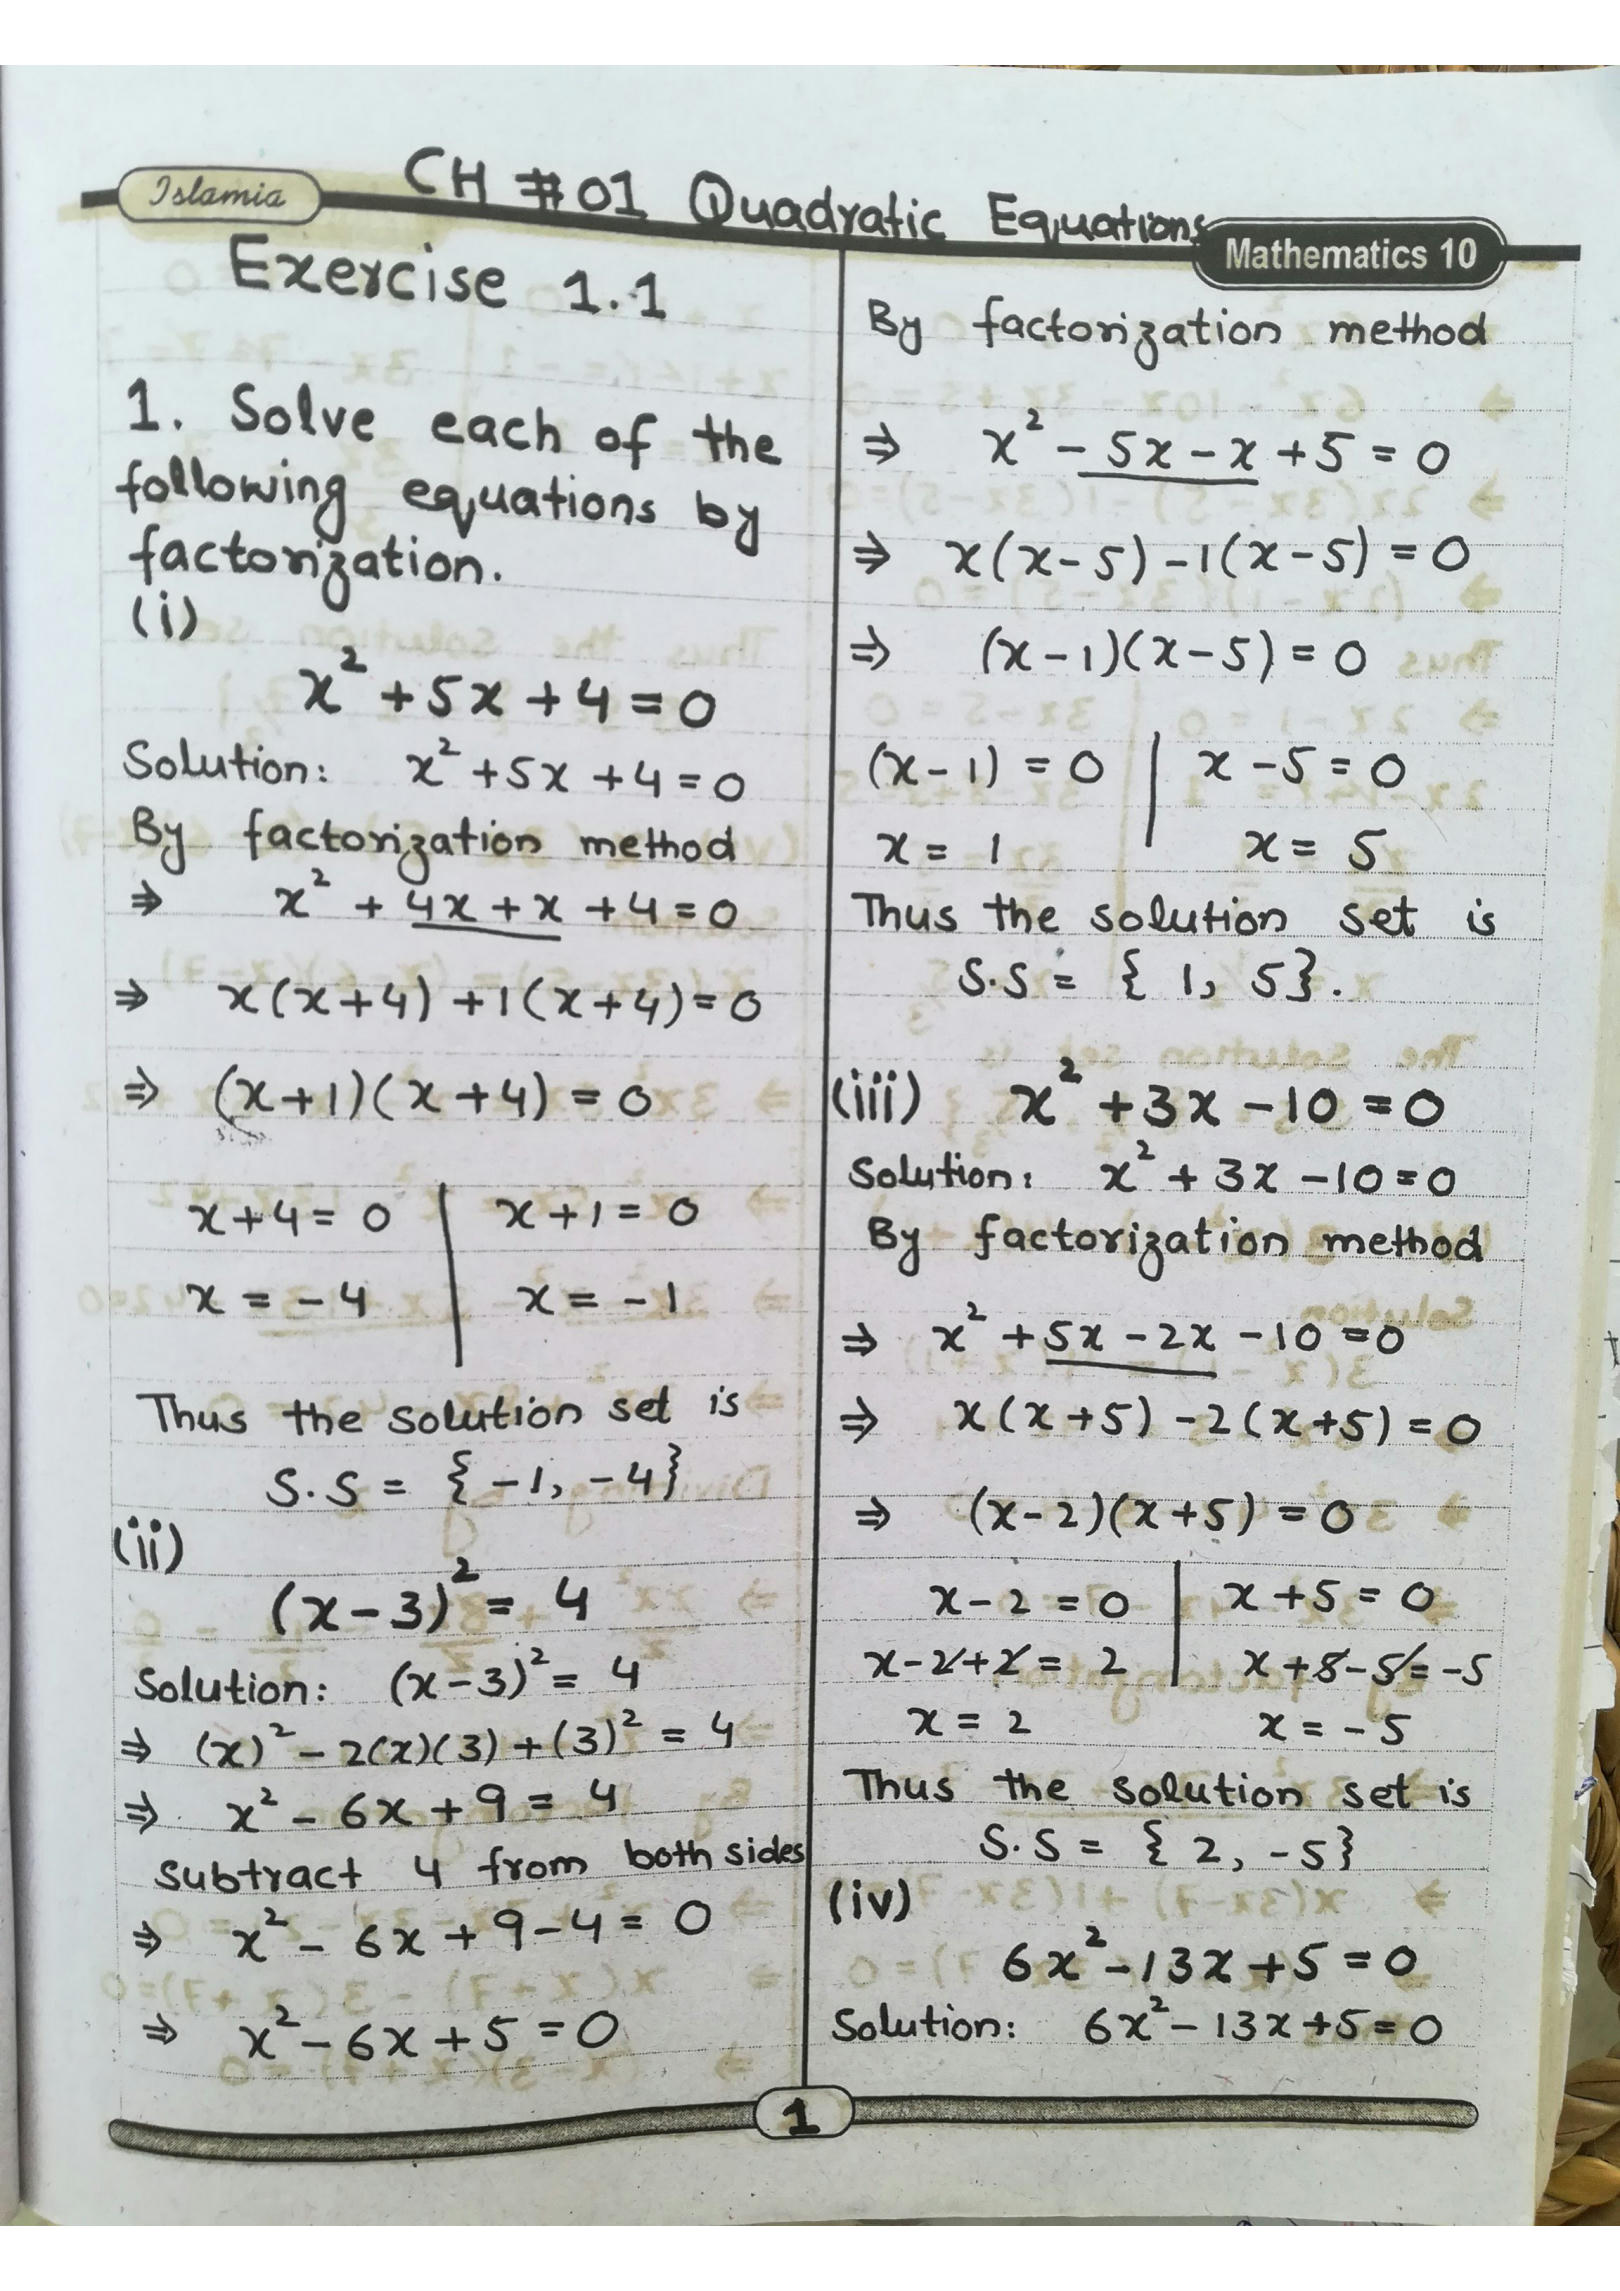 Islamia
CH #01 Quadratic Equations
Mathematics 10
Exercise 1.1
1. Solve each of the
following equations by
factorization.
(i)
x² + 5x + 4 = 0
Solution: x² + 5x + 4 = 0
By factorization method
⇒ x² + 4x + x + 4 = 0
⇒ x(x+4) + 1(x+4) = 0
⇒ (x+1)(x+4) = 0
x+4 = 0 | x+1 = 0
x = -4 | x = -1
Thus the solution set is
S.S = { -1, -4}
(ii)
(x-3)² = 4
Solution: (x-3)² = 4
⇒ (x)² - 2(x)(3) + (3)² = 4
⇒ x² - 6x + 9 = 4
Subtract 4 from both sides
⇒ x² - 6x + 9 - 4 = 0
⇒ x² - 6x + 5 = 0
By factorization method
⇒ x² - 5x - x + 5 = 0
⇒ x(x-5) - 1(x-5) = 0
⇒ (x-1)(x-5) = 0
(x-1) = 0 | x-5 = 0
x = 1 | x = 5
Thus the solution set is
S.S = { 1, 5}.
(iii) x² + 3x - 10 = 0
Solution: x² + 3x - 10 = 0
By factorization method
⇒ x² + 5x - 2x - 10 = 0
⇒ x(x+5) - 2(x+5) = 0
⇒ (x-2)(x+5) = 0
x-2 = 0 | x+5 = 0
x-2+2 = 2 | x+5-5 = -5
x = 2 | x = -5
Thus the solution set is
S.S = { 2, -5}
(iv)
6x² - 13x + 5 = 0
Solution: 6x² - 13x + 5 = 0
1